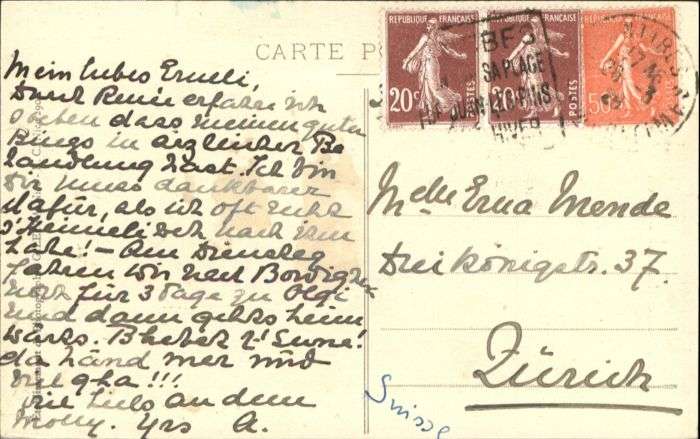 CARTE PO
REPUBLIQUE FRANÇAISE
20c
POSTES
REPUBLIQUE FRANÇAISE
20c
POSTES
REPUBLIQUE FRANÇAISE
50c
SA PLAGE
JUAN-LES-PINS
HIVER
Mein liebes Erneli,
Durch Renée erfahre ich
soeben dass meinen guten
Bings in ärztlicher Be
handlung hast. Ich bin
Dir umso dankbarer
dafür, als ich oft recht
s'Heimeli weh nach ihm
habe! – Am Dienstag
fahren wir nach Bordighera
noch für 3 Tage zu Olgi
und dann gehts heim
wärts. B'hüket z' Sunne!
da händ mer nüd
viel gha!!!
viel liebs an dem
Molly. Yrs A.
Melle Erna Mende
Dreikönigstr. 37.
Zürich
Suisse